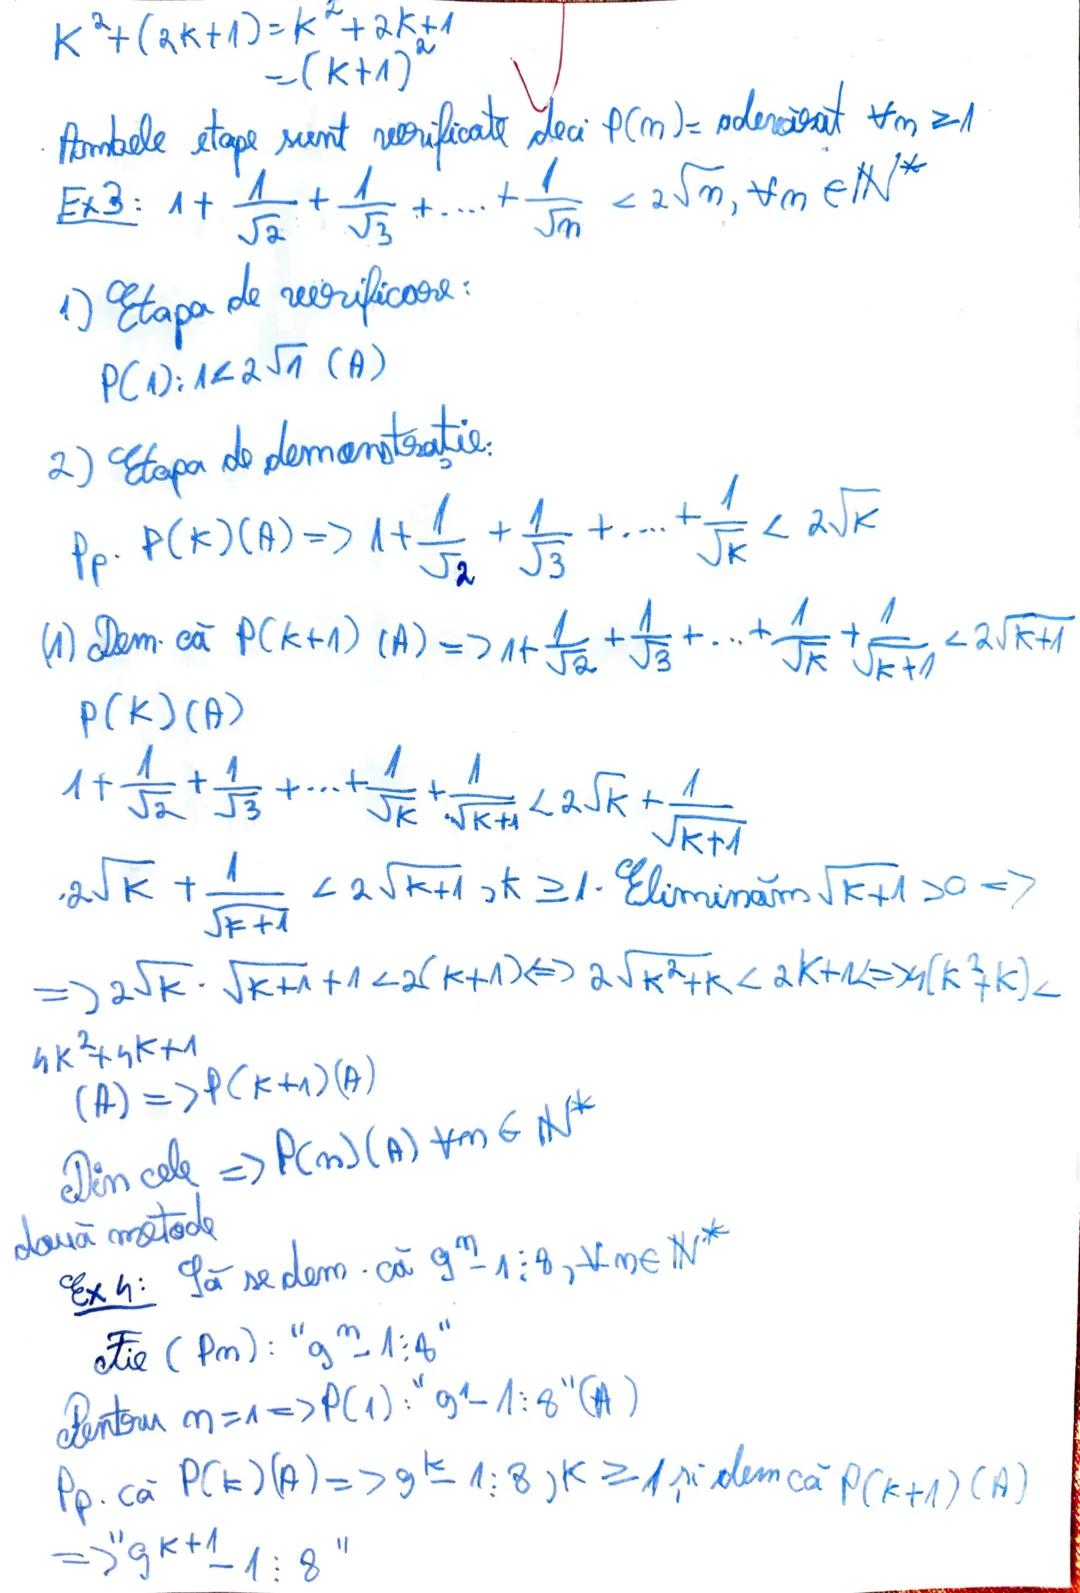 K²+(2K+1)=K²+2K+1
=(K+1)²
Ambele etape sunt verificate deci P(n)= adevărat ∀n ≥1
Ex3: 1+ 1/√2 + 1/√3 +....+ 1/√n < 2√n, ∀n ∈ℕ*
1) Etapa de verificare:
P(1): 1<2√1 (A)
2) Etapa de demonstrație:
Pp. P(K)(A) => 1+ 1/√2 + 1/√3 +....+ 1/√K < 2√K
(1) Dem. că P(K+1) (A) => 1+ 1/√2 + 1/√3 +...+ 1/√K + 1/√K+1 <2√K+1
P(K)(A)
1+ 1/√2 + 1/√3 +...+ 1/√K + 1/√K+1 <2√K + 1/√K+1
2√K + 1/√K+1 < 2√K+1, k ≥1. Eliminăm √K+1 >0 =>
=> 2√K · √K+1 +1 <2(K+1)<=> 2√K²+K < 2K+1<=>4(K²+K)<
4K²+4K+1
(A) => P(K+1)(A)
Din cele => P(n)(A) ∀n ∈ ℕ*
două metode
Ex 4: Să se dem. că 9ⁿ-1⋮8, ∀n∈ ℕ*
Fie (Pn): "9ⁿ-1⋮8"
Pentru n=1=>P(1): "9¹-1⋮8"(A)
Pp. că P(k)(A)=>9ᵏ-1⋮8, K ≥1 și dem că P(K+1) (A)
=>"9ᴷ⁺¹-1⋮8"